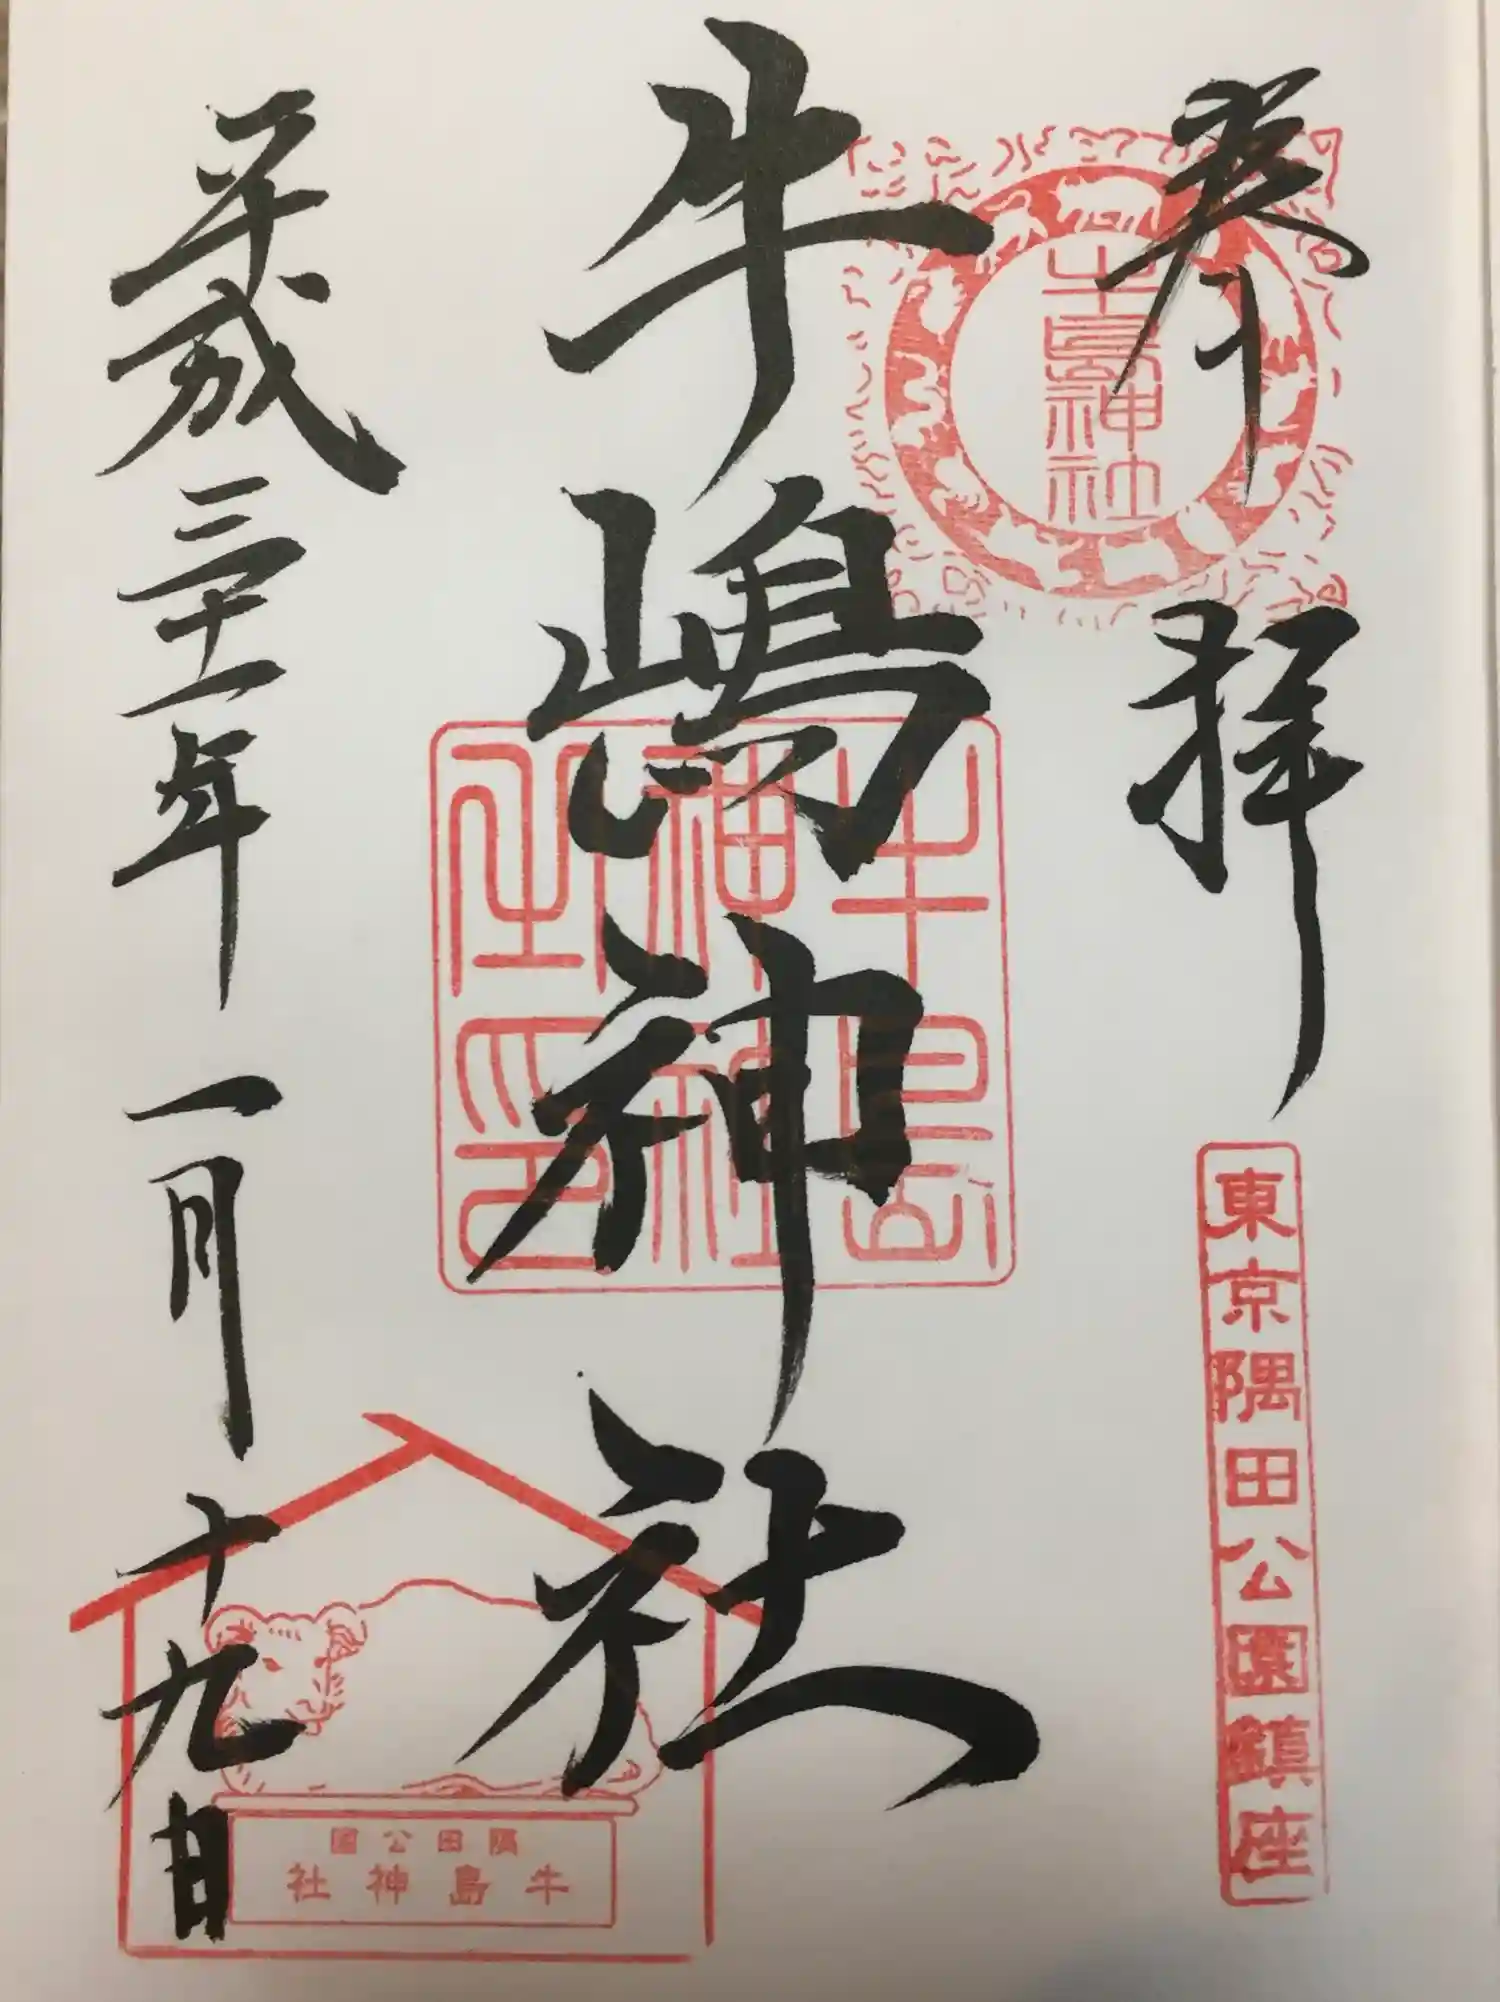 奉拝
牛島神社
東京隅田公園鎮座
牛嶋神社
牛島
神社
之印
平成三十一年一月十九日
隅田公園
牛島神社